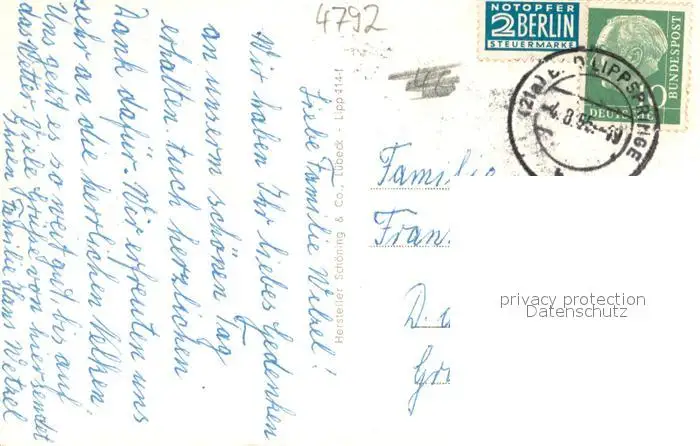 4792
NOTOPFER
2 BERLIN
STEUERMARKE
DEUTSCHE
BUNDESPOST
(21a) BAD LIPPSPRINGE
Liebe Familie Wetzel!
Wir haben Ihr liebes Gedenken
an unsern schönen Tag
erhalten. Euch herzlichen
Dank dafür. Wir erfreuten uns
sehr an die herrlichen Nelken
Uns geht es so weit gut, bis auf
das Wetter. Viele Grüße von hier sendet
Ihnen Familie Hans Wetzel
Hersteller Schöning & Co., Lübeck - Lipp
Familie
Fran
privacy protection
Datenschutz